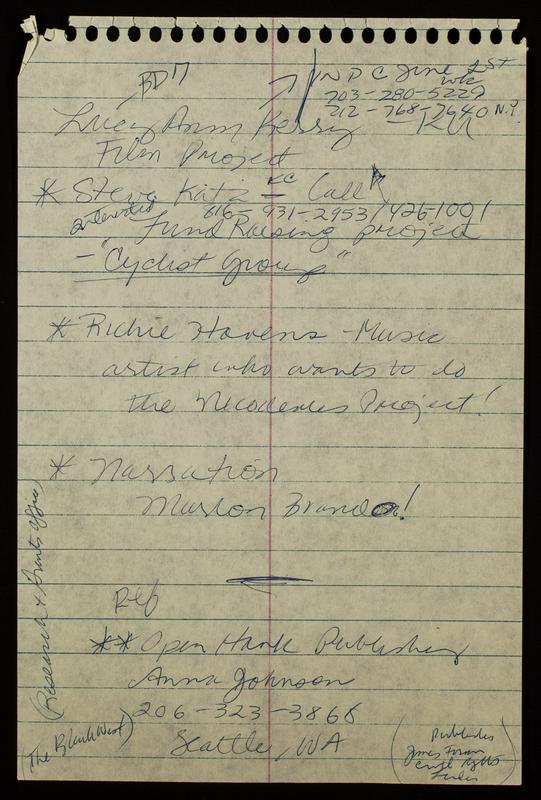 BD
NPC June 1ST
wk
203-280-5229
212-768-7640 N.Y.
Lucy Ann Kerry
Film Project
* Steve Katz - KC Call
816-931-2953/426-1001
"Fund Raising project
- Cyclist group"
* Richie Havens - Music
artist who wants to do
the Nicodemus Project!
* Narration
Marlon Brando!
Ref
** Open Hank Publishing
Anna Johnson
206-323-3868
Seattle, WA
(Research & Grants Office)
(The Black West)
(Publishes
James Forman
Civil Rights